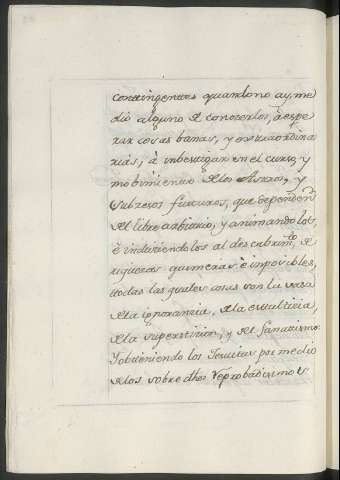 contingentes quando no ay me
dio alguno de conocerlos, a espe
rar cosas banas, y extraordina
rias, à inbestigar en el curso, y
mobimiento de los Astros, y
subcesos futuros, que dependen
del libre arbitrio, y animandolos,
è induciendolos al descubrim.to de
riquezas quimericas è imposibles,
todas las quales cosas son la vasa
de la ignorancia, de la estulticia,
de la supersticion, y del fanatismo
Y obteniendo los Jesuitas por medio
de los sobre dhos reprobadisimos